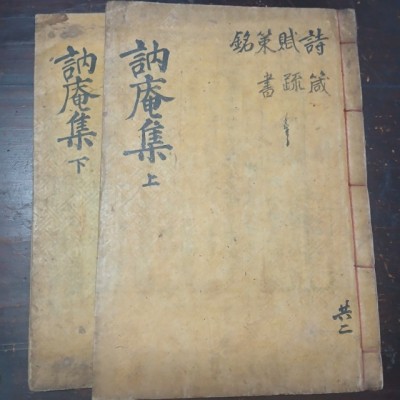 詩箴
賦疏
策書
銘
共二
訥庵集 上
訥庵集 下